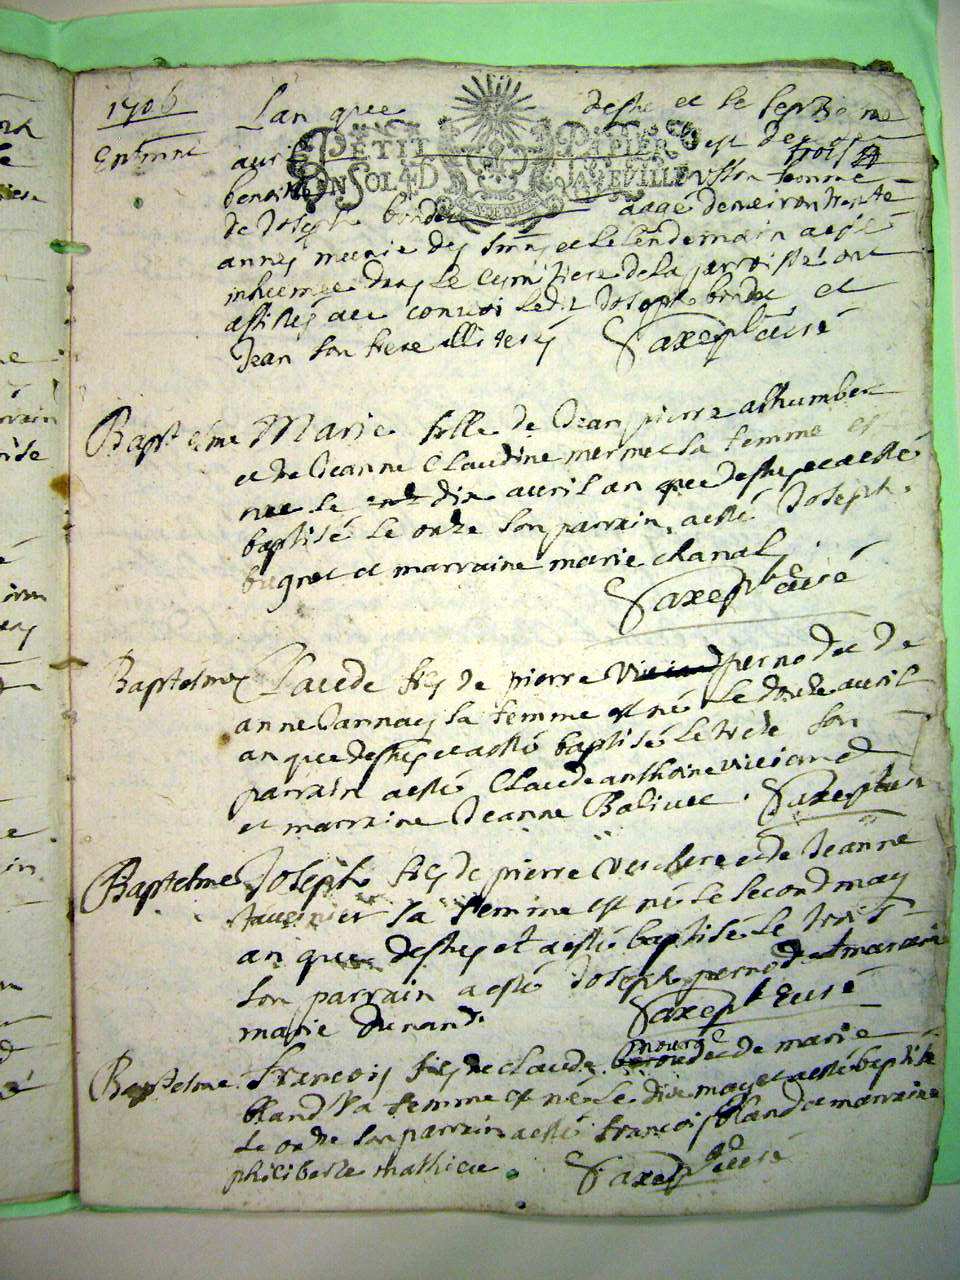 1706
Lan que desus et le septieme
Enterremt
PETIT PAPIER
UN SOL 4 D LA FEUILLE
avril est de
trois
benoite femme
de Joseph bondet aagé denviron trente
annes munie des et le lendemain a esté
inhumee dans le cymitiere de la parroisse ont
assistés au convoi ledit Joseph bondet et
Jean son frere illiteres Saxe ptre curé
Baptesme Marie fille de Jean pierre
et de Jeanne Claudine mermet sa femme est
nee le dix avril an que desus et a esté
baptisé le onze son parrain a esté Joseph
bugnet et marraine marie chanal
Saxe ptre curé
Baptesme Claude fils de pierre pernodet de
anne Jannay sa femme est né le douze avril
an que desus et a esté baptisé le treze son
parrain a esté Claude anthoine viciand
et marraine Jeanne Balivet. Saxe ptre curé
Baptesme Joseph fils de pierre et de Jeanne
tavernier sa femme est né le second may
an que desus et a esté baptisé le trois
son parrain a esté Joseph pernodet marraine
marie dunand. Saxe ptre curé
Baptesme francois fils de Claude et de marie
bland sa femme est né le dix may et a esté baptisé
le onze son parrain a esté francois bland et marraine
philiberte mathieu. Saxe ptre curé